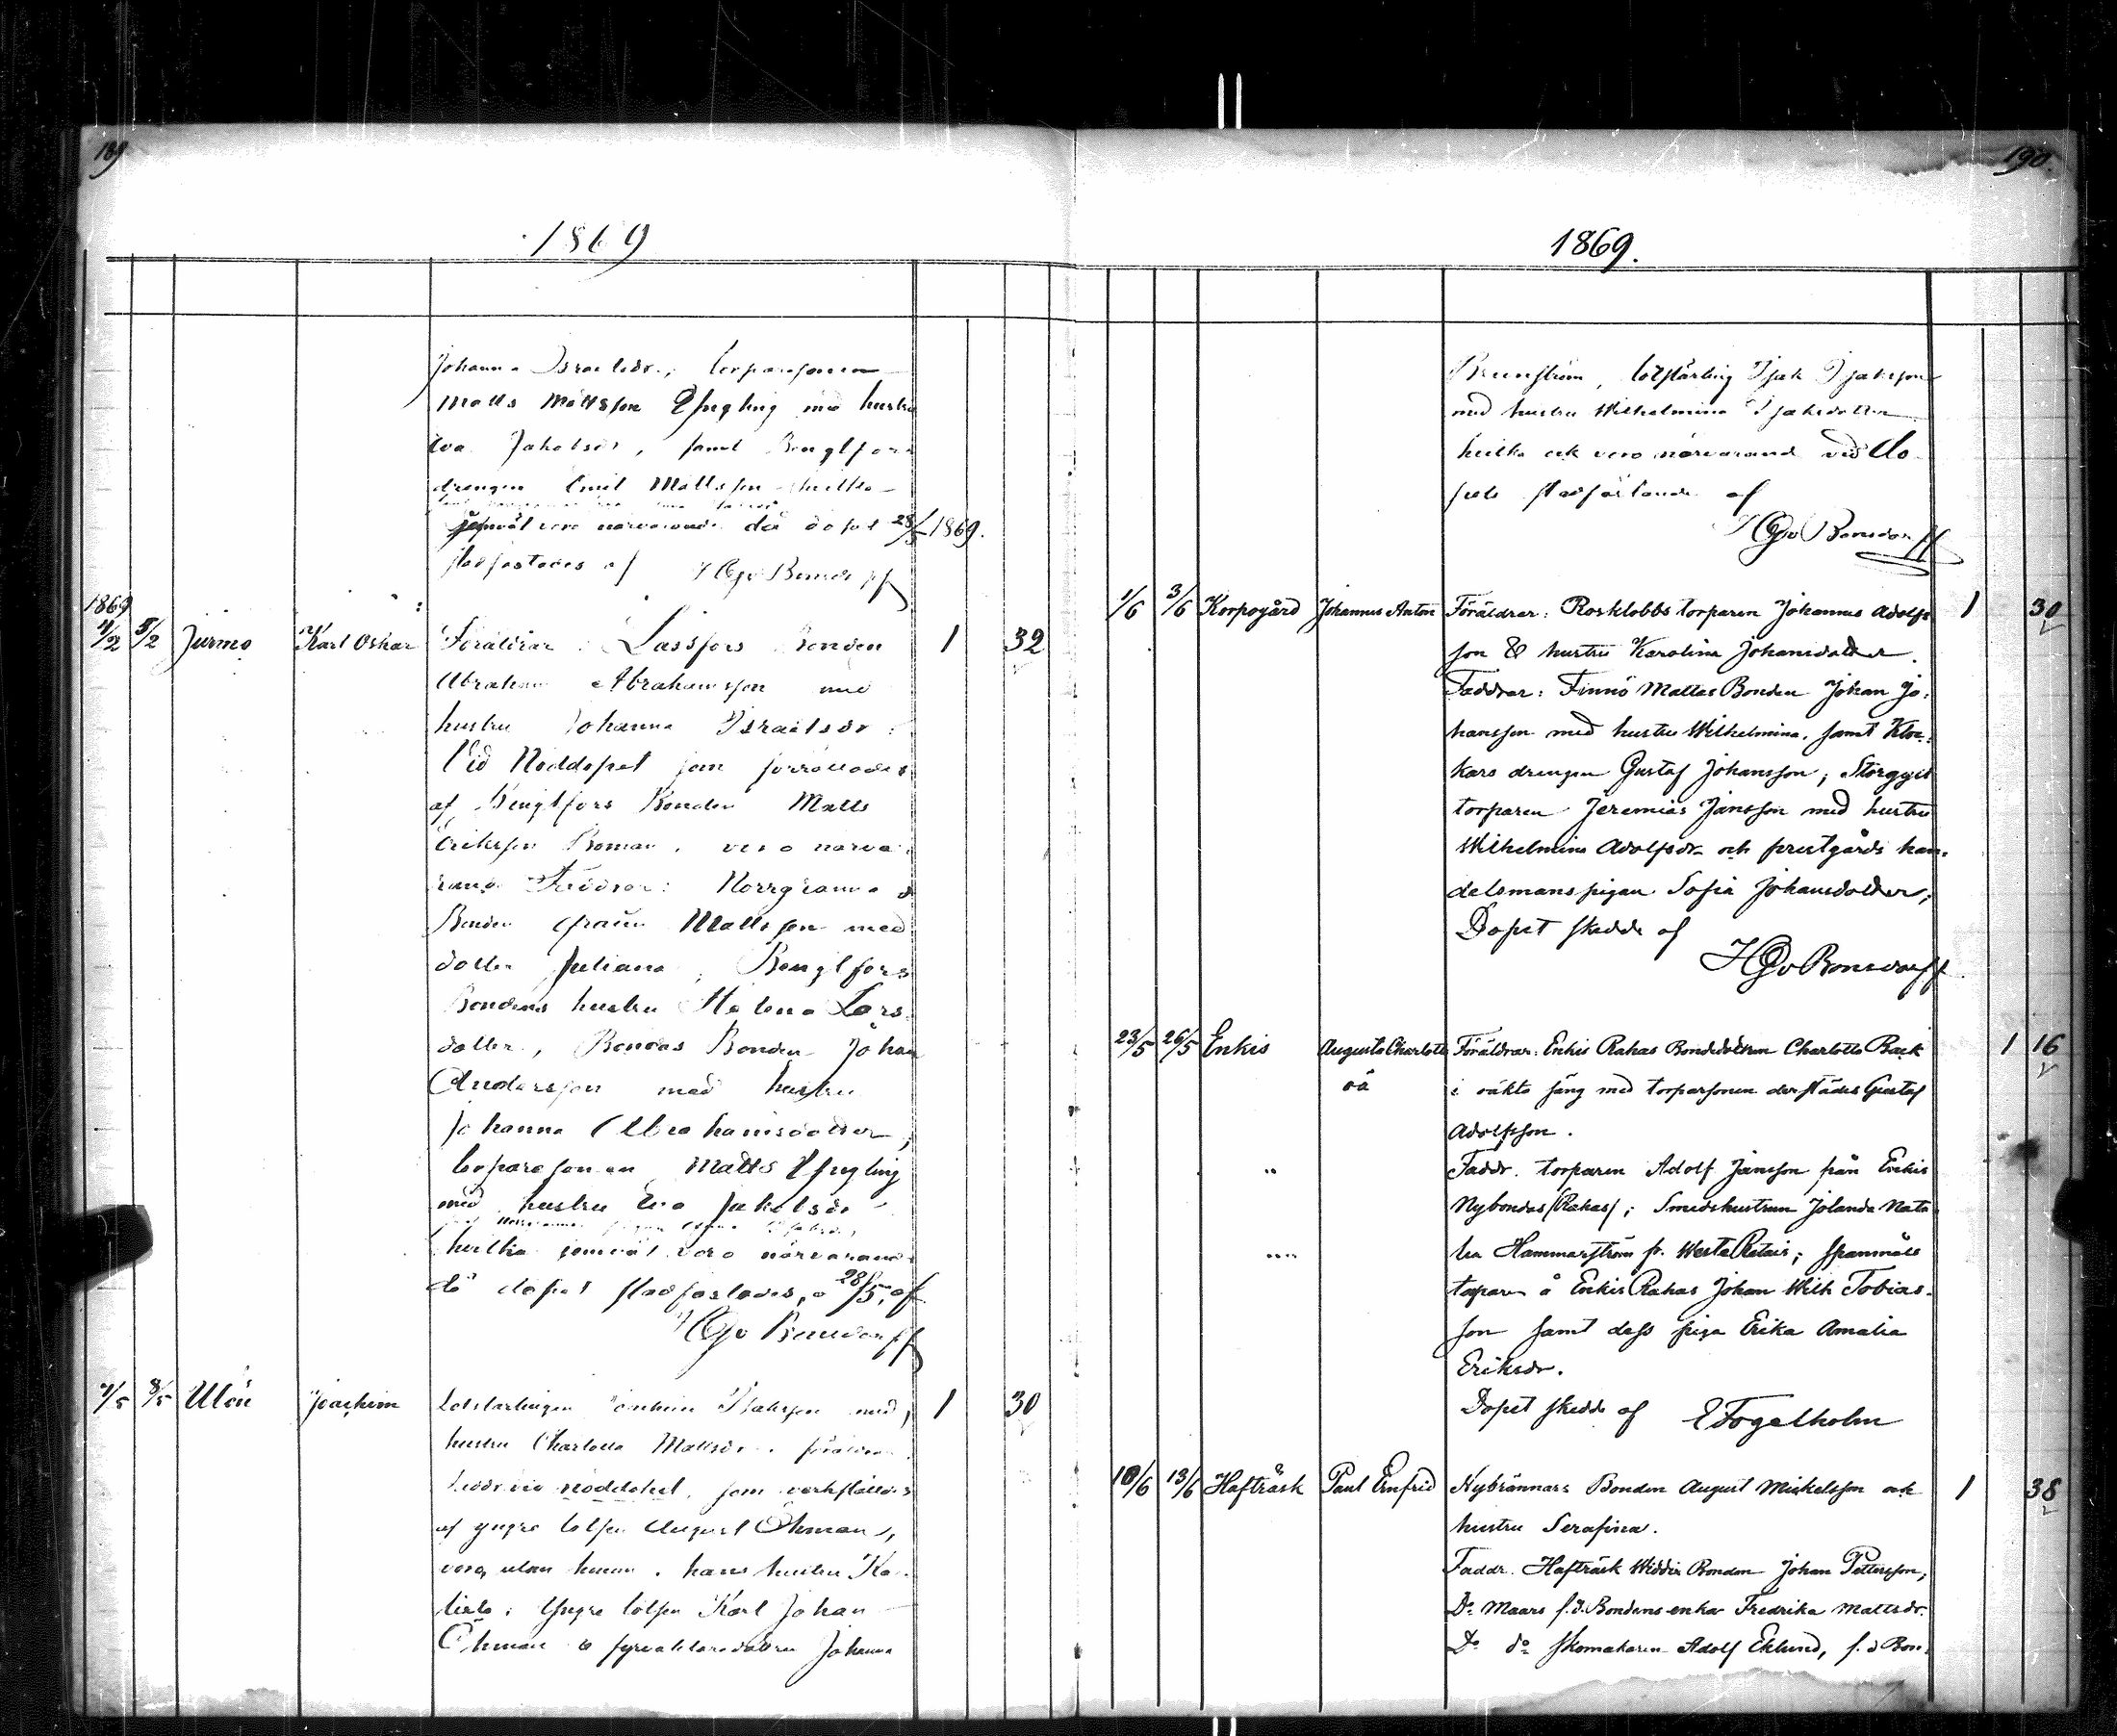 189
1869
Johanna Israelsdr., torparesonen
Matts Mattsson Ysugling med hustru
Eva Jakobsdr, samt Bengtsfors
drengen Emil Mattsson hvilka
jemväl voro närvarande då dopet 28/5 1869.
stadfästades af HGvBonsdorff
1869
4/2 5/2 Jurmo Karl Oskar Föräldrar: Lassfors Bonden 1 32
Abraham Abrahamsson med
hustru Johanna Israelsdr:
Vid Nöddopet som förrättades
af Bengtsfors Bonden Matts
Eriksson Boman, voro närva
rande Faddrar: Norrgranna
Bonden Efraim Mattsson med
dotter Juliana, Bengtsfors
Bondens hustru Helena Lars
dotter, Bondas Bonden Johan
Andersson med hustru
Johanna Abrahamsdotter,
torparesonen Matts Ysugling
med hustru Eva Jakobsdr
hvilka jemväl voro närvarande
då dopet stadfästades, 28/5, af
HGvBonsdorff
7/5 8/5 Utön Joachim Lotslärlingen Isaksson med, 1 30
hustru Charlotta Mattsdr. föräldrar
Faddr vid nöddopet, som verkställdes
af yngre lotsen August Öhman,
voro, utom honom, hans hustru Ka
; Yngre lotsen Karl Johan
Öhman & fyrvaktaredottren Johanna
190.
1869.
Brunström, lotslärling Isak Isaksson
med hustru Wilhelmina Isaksdotter
hvilka ock voro närvarand vid do
pets stadfästande af
HGvBonsdorff
1/6 3/6 Korpogård Johannes Anton Föräldrar: Rosklobbs torparen Johannes Adolfs 1 30
son & hustru Karolina Johansdotter.
Faddrar: Finnö Mattas Bonden Johan Jo:
hansson med hustru Wilhelmina, samt Kloc:
kars drengen Gustaf Johansson; Storgyit
torparen Jeremias Jansson med hustru
Wilhelmina Adolfsdr och prestgårds han:
delsmans pigan Sofia Johansdotter;
Dopet skedde af
HGvBonsdorff
23/5 26/5 Enkis Augusta Charlotta Föräldrar: Enkis Rahas Bondedottren Charlotta Back 1 16
oä i oäkta säng med torparsonen derstädes Gustaf
Adolfsson.
Faddr. torparen Adolf Jansson från Enkis
Nybondas (Rahas); Smedshustrun Jolanda Nata
lia Hammarström fr. Westa Retais; spannmåls
torparen å Enkis Rahas Johan Wilh Tobias-
son samt dess piga Erika Amalia
Eriksdr.
Dopet skedde af E Fogelholm
10/6 13/6 Hafträsk Paul Enfrid Nybrännars Bonden August Mickelsson och 1 38
hustru Serafina.
Faddr. Hafträsk Widdis Bonden Johan Pettersson,
Do Maars f.d. Bondens enka Fredrika Mattsdr.
Do do skomakaren Adolf Eklund, f. d Bon-